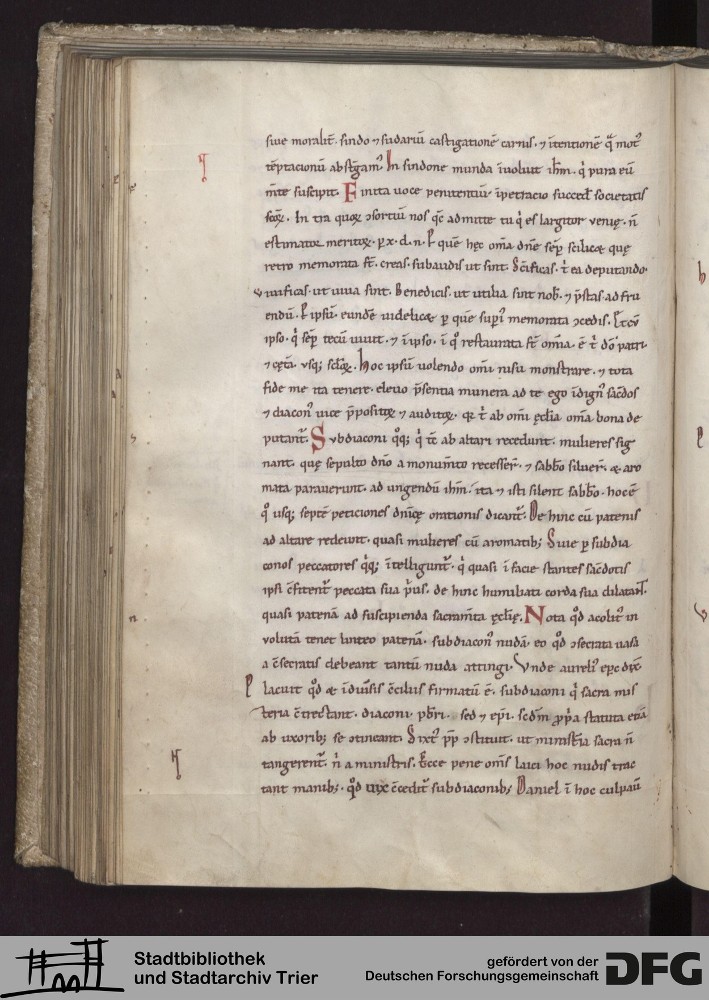 siue moralit̄. sindo ⁊ sudariū castigationē carnis. ⁊ ītentionē
tēptacionū In sindone munda īuoluit ihm̄. q̇ pura eū
m̄te suscipit. Finita uoce penitentiū īpetracio succed̄ societatis
In tra quoꝝ ɔsortiū nos admitte tu q̇ es largitor uenię. n̄
estimator meritoꝝ. p x. d. n. P quē hęc om̄a dn̄e sēp scilicet quę
retro memorata st̄. creas. subaudis ut sint. Sc̄ificas. ea deputando
uiuificas. ut uiua sint. Benedicis. ut utilia sint nob̄. ⁊ p̄stas. ad fru
endū. P ipsū. eundē uidelicet p quē supi᷒ memorata ɔcedis.
ipso. q̇ sēp tecū uiuit. ⁊ ī ipso. ī q̊ restaurata st̄ om̄ia. patri.
⁊ cęt̄a. usq; Hoc ipsū uolendo om̄i nisu monstrare. ⁊ tota
fide me ita tenere. eleuo p̄sentia munera ad te ego īdign᷒ sac̄dos
⁊ diacon᷒ uice p̄positoꝝ ⁊ auditoꝝ. ab om̄i ęcl̄ia om̄a bona de
putant᷑. Subdiaconi q̊q; q̇ ab altari recedunt. mulieres sig
nant. quę sepulto dn̄o a monum̄to recesser̄. ⁊ sabb̄o siluer̄. & aro
mata parauerunt. ad ungendū ihm̄. ita ⁊ isti silent sabb̄o. hoc ē
q̊ usq; septē peticiones dn̄icę orationis dicant᷑. De hinc cū patenis
ad altare redeunt. quasi mulieres cū aromatib; Siue p subdia
conos peccatores q̊q; ītelligunt᷑. q̇ quasi ī facie stantes sac̄dotis
ipsi c̄fitent᷑ peccata sua p̓us. de hinc humiliati corda sua dilatant᷑.
quasi patenā ad suscipienda sacram̄ta ęcl̄ię. Nota qđ acolit᷒ in
uolutā tenet linteo patenā. subdiacon᷒ nudā. eo qđ ɔsecrata uasa
a c̄secratis debeant tantū nuda attingi. Vnde aureli᷒ ep̄c dix̄.
Placuit qđ & ī diu̓sis c̄ciliis firmatū ē. subdiaconi q̇ sacra mis
teria c̄trectant. diaconi. pb̄ri. sed ⁊ ep̄i. scd̄m p̄p̄a statuta etiā
ab uxorib; se ɔtineant. Sixt᷒ pp̄ ɔstituit. ut minist̄ia sacra n̄
tangerent᷑. n̓ a ministris. Ecce pene om̄s laici hoc nudis trac
tant manib;. qđ uix c̄cedit᷑ subdiaconib; Daniel ī hoc culpau̓
Stadtbibliothek
und Stadtarchiv Trier
gefördert von der
Deutschen Forschungsgemeinschaft DFG